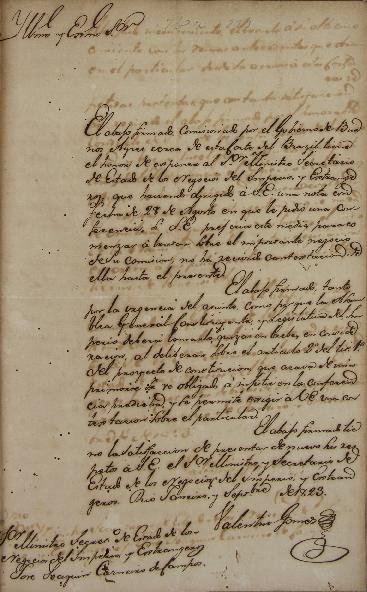 Yllmo y Exmo Sor
El abajo firmado Comisionado por el Gobierno de Bue
nos Ayres cerca de esta Corte del Brazil tiene
el honor de exponer al Sor Ministro Secretario
de Estado de los Negocios del Imperio, y Extrange
ros, que haviendo dirigido á S.E. una nota con
fecha de 28 de Agosto en que le pidió una con
ferencia, ó S.E. prefixase este medio para co
menzar á tratar sobre el importante negocio
de su comision, no ha recivido contestacion á
ella hasta el presente.
El abajo firmado, tanto
por la urgencia del asunto, como porque la Asam
blea General Constituyente, y Legislativa del Im
perio
al deliberar sobre el articulo 2º del tit. 1º
del proyecto de constitucion, que acava de
se ve obligado á insistir en la conferen
cia predicha, y se permite exigir á V.E. una con
testacion sobre el particular.
El abajo firmado tie
ne la satisfaccion de presentar de nuevo sus res
petos á S.E. el Sor Ministro, y Secretario de
Estado de los Negocios del Imperio, y Extran
geros. Rio Janeiro, y Sepbre de 1823.
Valentin Gomez
Sor Ministro Secreto de Estado de los
Negocios del Imperio y Extrangeros
Jose Joaquin Carneiro de Campos.